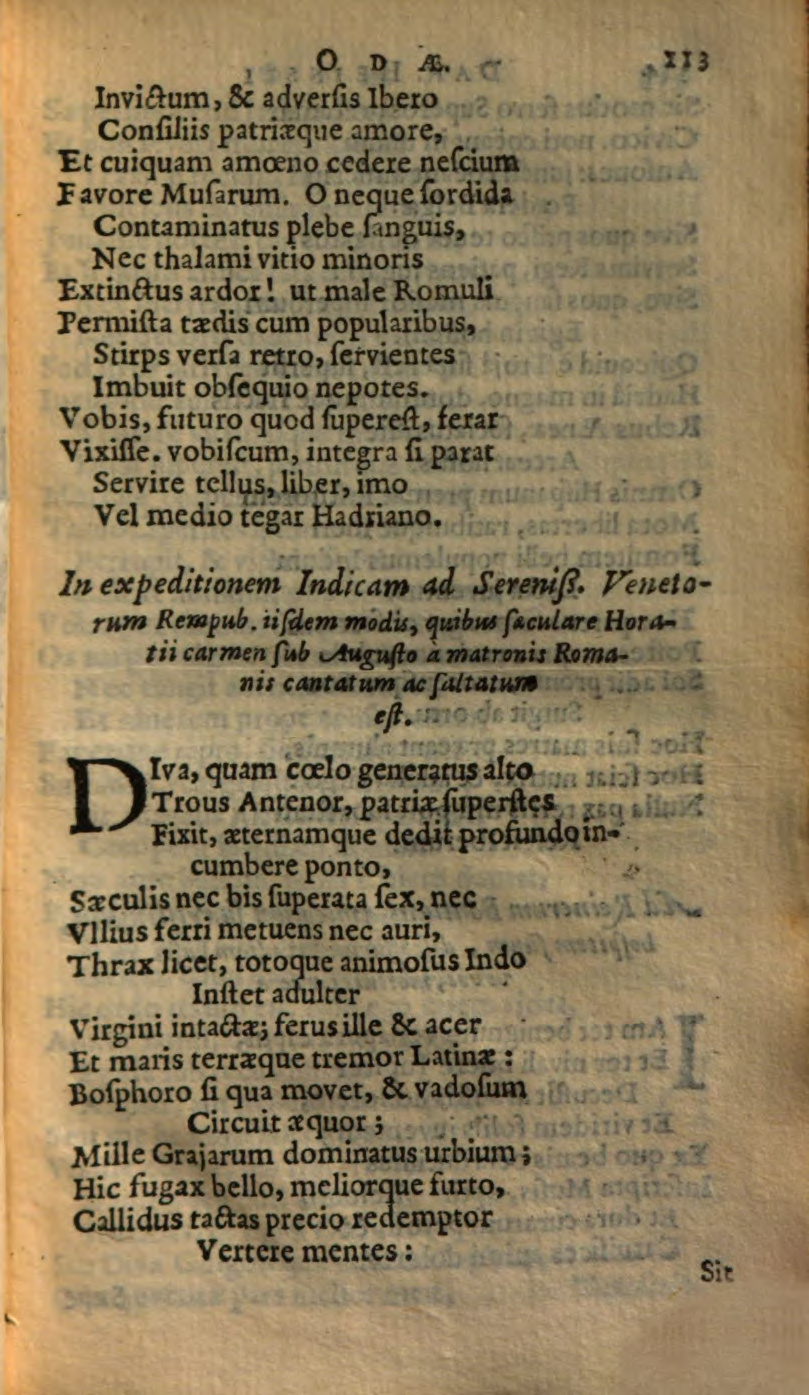 O D Æ. 113
Invictum, & adverſis Ibero
Conſiliis patriæque amore,
Et cuiquam amœno cedere neſcium
Favore Muſarum. O neque ſordida
Contaminatus plebe ſanguis,
Nec thalami vitio minoris
Extinctus ardor! ut male Romuli
Permiſta tædis cum popularibus,
Stirps verſa retro, ſervientes
Imbuit obſequio nepotes.
Vobis, futuro quod ſupereſt, ferar
Vixiſſe. vobiſcum, integra ſi parat
Servire tellus, liber, imo
Vel medio tegar Hadriano.
In expeditionem Indicam ad Sereniſſ. Veneto-
rum Rempub. iiſdem modis, quibus ſæculare Hora-
tii carmen ſub Auguſto a matronis Roma-
nis cantatum ac ſaltatum
eſt.
DIva, quam cœlo generatus alto
Trous Antenor, patriæ ſuperſtes
Fixit, æternamque dedit profundo in-
cumbere ponto,
Sæculis nec bis ſuperata ſex, nec
Vllius ferri metuens nec auri,
Thrax licet, totoque animoſus Indo
Inſtet adulter
Virgini intactæ; ferus ille & acer
Et maris terræque tremor Latinæ:
Boſphoro ſi qua movet, & vadoſum
Circuit æquor;
Mille Grajarum dominatus urbium;
Hic fugax bello, meliorque furto,
Callidus tactas precio redemptor
Vertere mentes:
Sit